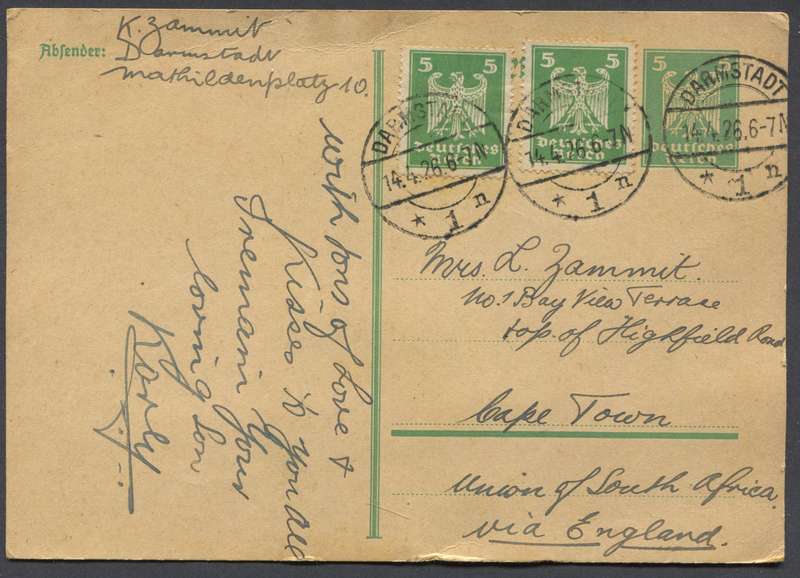 Absender:
K. Zammit
Darmstadt
Mathildenplatz 10.
5 5
Deutsches
Reich
5 5
Deutsches
Reich
5 5
Deutsches
Reich
DARMSTADT
14.4.26.6-7N
* 1 n
DARMSTADT
14.4.26.6-7N
* 1 n
DARMSTADT
14.4.26.6-7N
* 1 n
with tons of Love &
Kisses to you all
I remain your
loving Son
Karly
Mrs. L. Zammit.
No. 1 Bay View Terrace
top. of Highfield Road
Cape Town
Union of South Africa
via England.